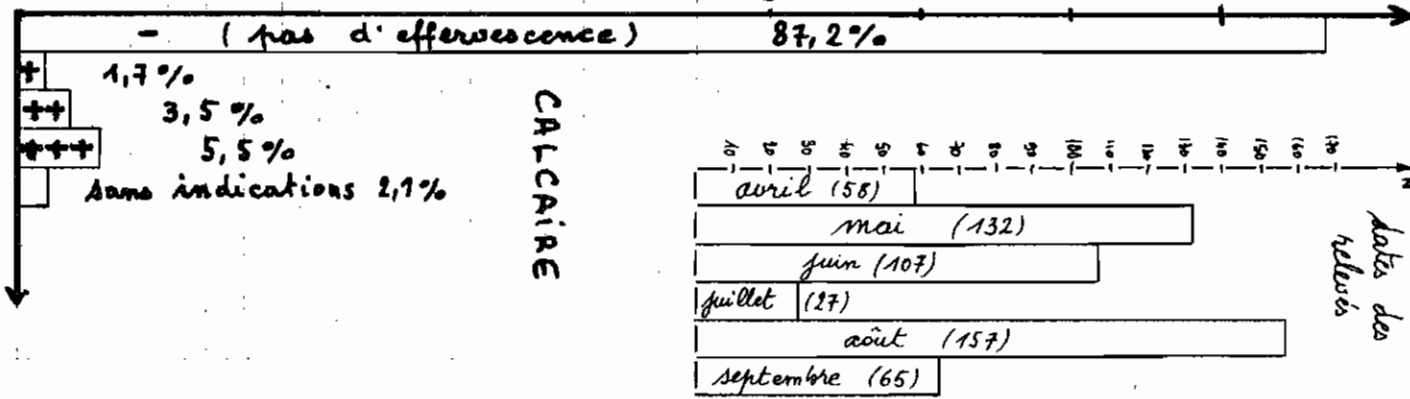 - (pas d'effervescence) 87,2%
+ 1,7%
++ 3,5%
+++ 5,5%
sans indications 2,1%
CALCAIRE
10 20 30 40 50 60 70 80 90 100 110 120 130 140 150 160 170
N
avril (58)
mai (132)
juin (107)
juillet (27)
août (157)
septembre (65)
dates des
relevés